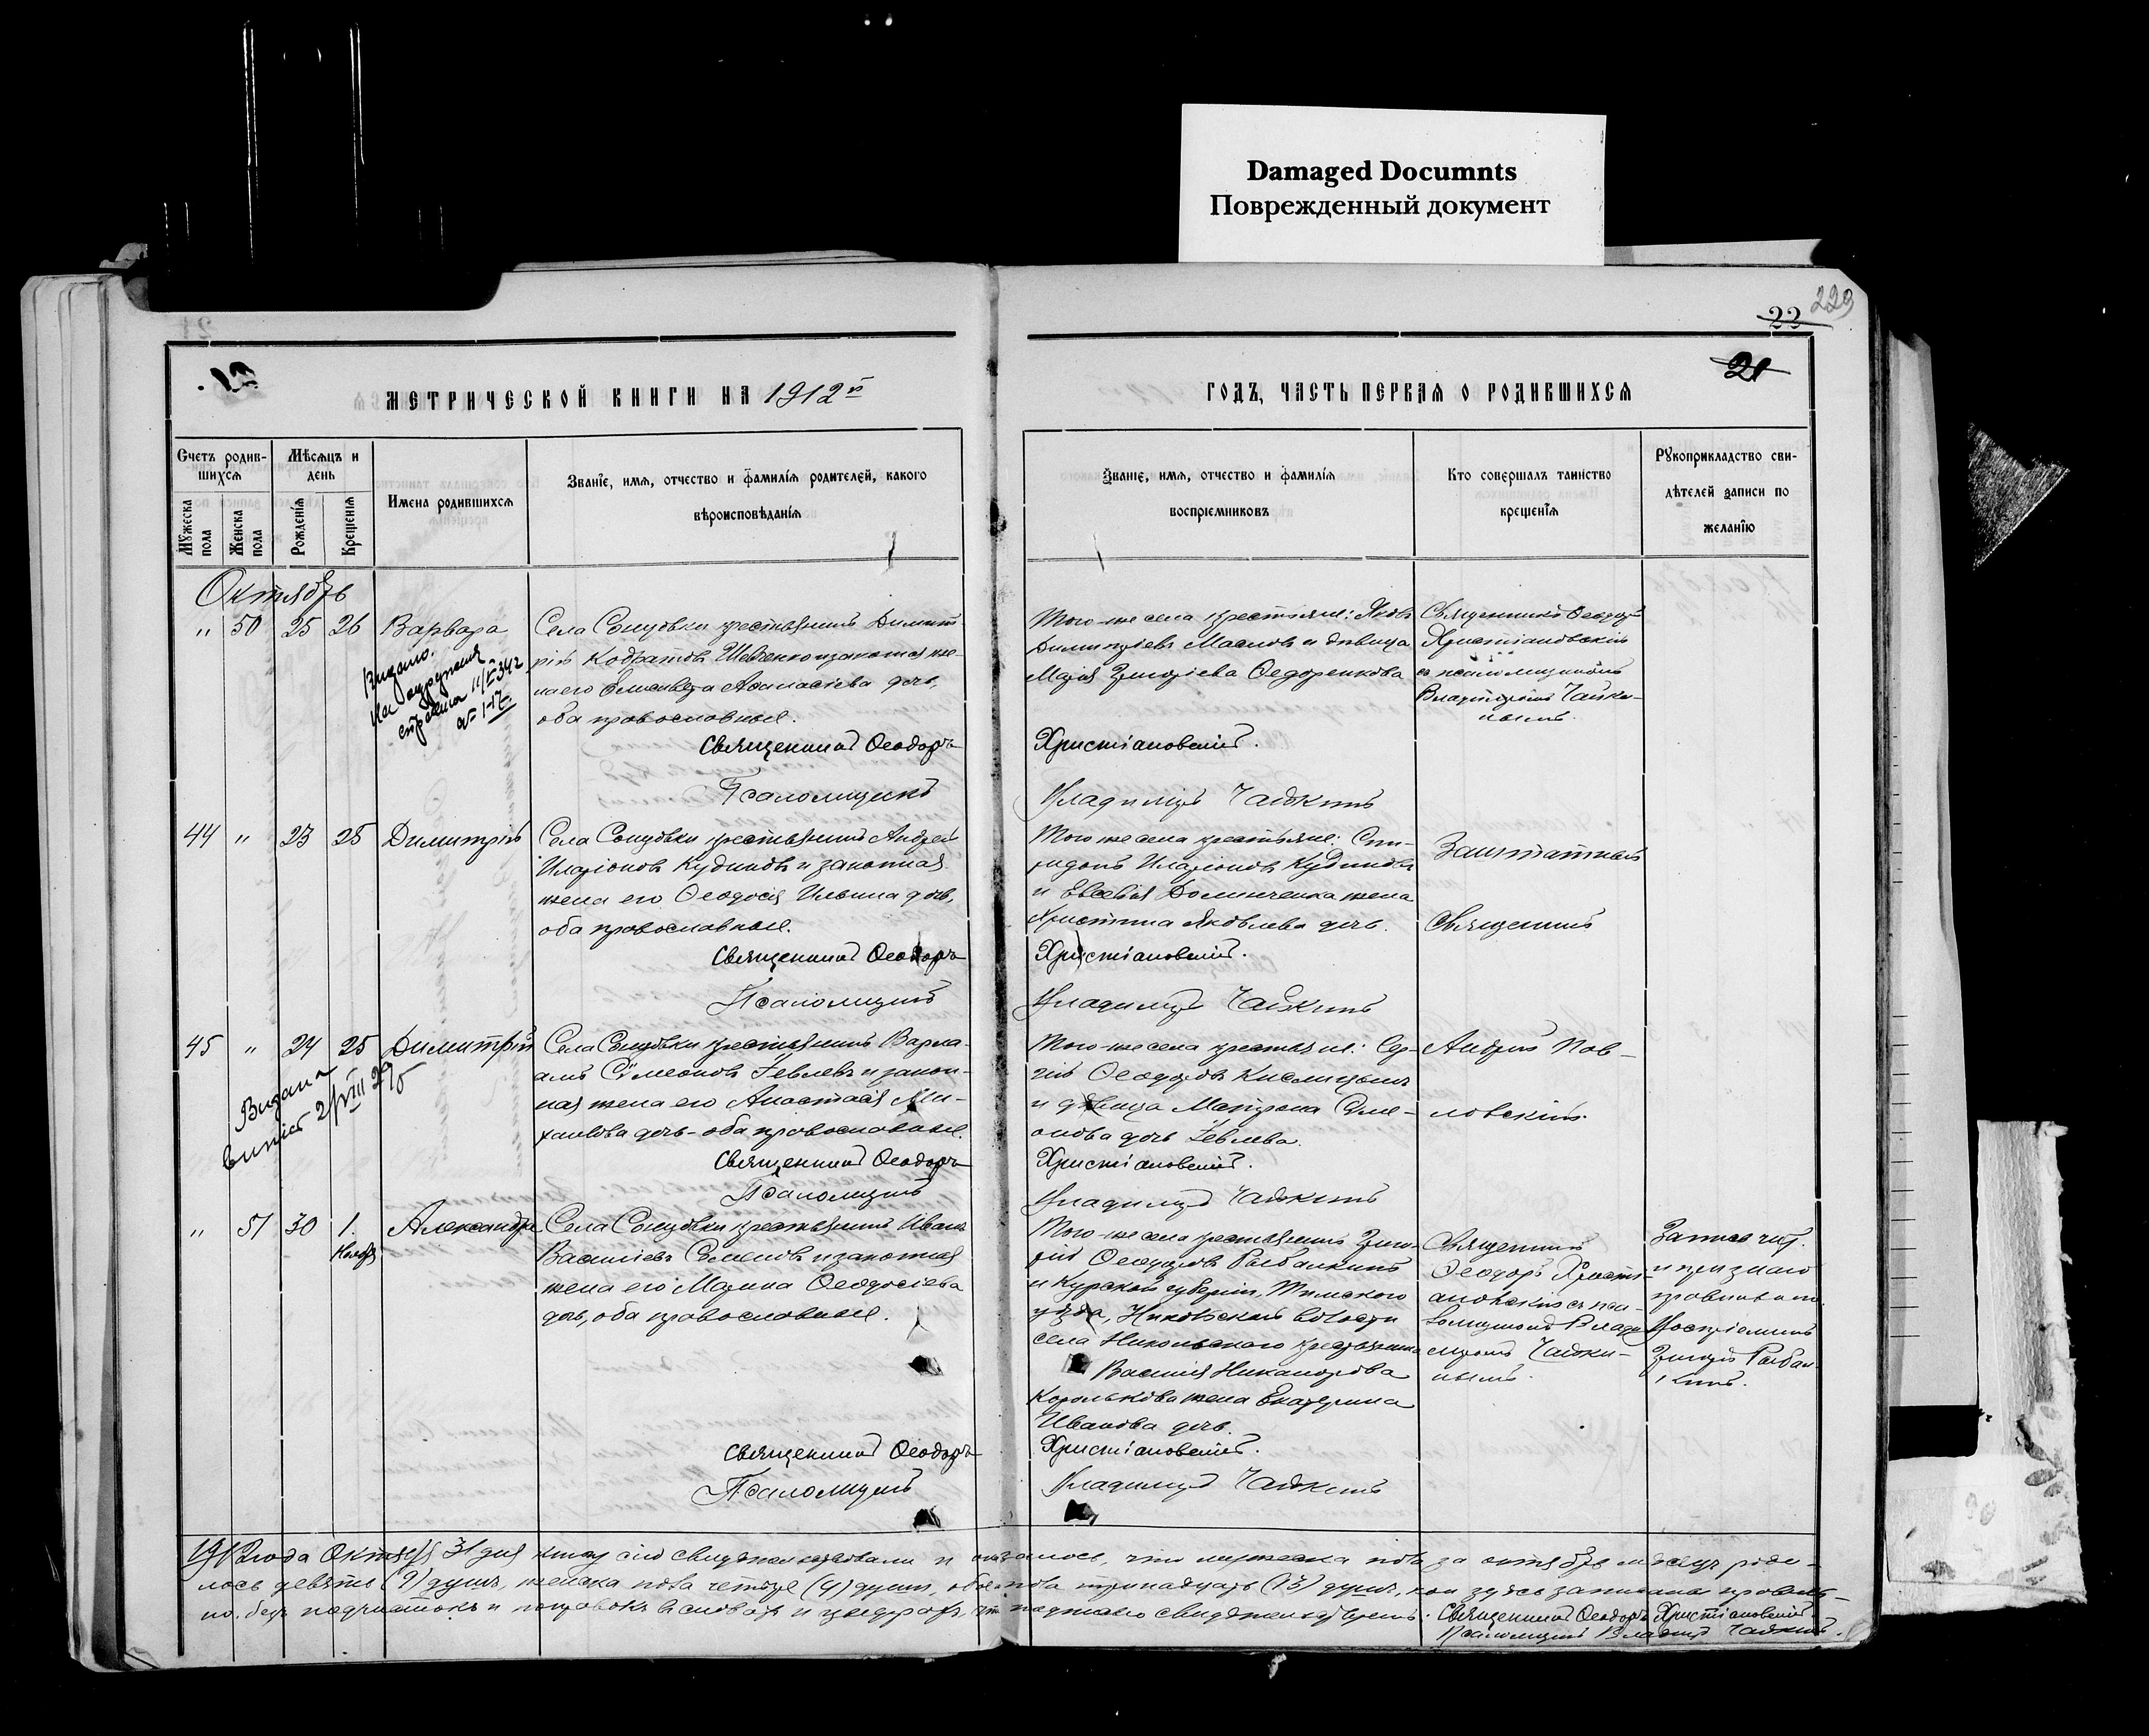 Damaged Documnts
Поврежденный документ
229
22
21
21
МЕТРИЧЕСКОЙ КНИГИ НА 1912й
ГОДЪ, ЧАСТЬ ПЕРВАЯ О РОДИВШИХСЯ
Счетъ родив-
шихся
Мѣсяцъ и
день
Мужеска
пола
Женска
пола
Рожденія
Крещенія
Имена родившихся
Званіе, имя, отчество и фамилія родителей, какого
вѣроисповѣданія
Званіе, имя, отчество и фамилія
воспріемниковъ
Кто совершалъ таинство
крещенія
Рукоприкладство сви-
дѣтелей записи по
желанію
Октябрь
" 50 25 26 Варвара
Села Солцовки крестьянинъ Димит-
рій Кодратовъ Шевченко и законная же-
на его Елисавета Аѳанасіева дочь,
оба православные.
Священникъ Ѳеодоръ
Псаломщикъ
Того-же села крестьяне: Яковъ
Димитріевъ Масловъ и дѣвица
Марія Григоріева Ѳедоренкова
Христіановскій.
Владиміръ Чайкинъ
Священникъ Ѳеодоръ
Христіановскій
съ псаломщикомъ
Владиміромъ Чайки-
нымъ.
44 " 23 25 Димитрій
Села Солцовки крестьянинъ Андрей
Иларіоновъ Кудиновъ и законная
жена его Ѳеодосія Ильина дочь,
оба православные.
Священникъ Ѳеодоръ
Псаломщикъ
Того же села крестьяне: Спи-
ридонъ Иларіоновъ Кудиновъ
и Евсевія Долинченка жена
Христина Яковлева дочь.
Христіановскій.
Владиміръ Чайкинъ
Заштатный
Священникъ
45 " 24 25 Димитрій
Села Солцовки крестьянинъ Варла-
амъ Сѵмеоновъ Зевлевъ и закон-
ная жена его Анастасія Ми-
хаилова дочь - оба православные.
Священникъ Ѳеодоръ
Псаломщикъ
Того-же села крестьяне: Сер-
гій Ѳеодоровъ Кислицынъ
и дѣвица Матрона Симе-
онова дочь Зевлева.
Христіановскій.
Владиміръ Чайкинъ
Андрей Пав-
ловскій.
" 51 30 1. Александра
Ноября
Села Солцовки крестьянинъ Иванъ
Василіевъ Семеновъ и законная
жена его Марина Ѳеодосіева
дочь, оба православные.
Священникъ Ѳеодоръ
Псаломщикъ
Того-же села крестьянинъ Григо-
рій Ѳеодоровъ Рыбалкинъ
и Курской губерніи, Тимскаго
уѣзда, волости
села Никольскаго крестьянина
Василія Никанорова
Королькова жена Екатерина
Иванова дочь.
Христіановскій.
Владиміръ Чайкинъ
Священникъ
Ѳеодоръ Христі-
ановскій съ пса-
ломщикомъ Влади-
міромъ Чайки-
нымъ.
Запись чит.
и признаю
правильною
Воспріемникъ
Григорій Рыбал-
кинъ.
1912 года Октября 31 дня книгу сію свидѣтельствовали и оказалось, что мужеска пола за октябрь мѣсяцъ роди-
лось девять (9) душъ, женска пола четыре (4) души, обоего пола тринадцать (13) душъ, кои здѣсь записаны правиль-
но, безъ подчистокъ и поправокъ въ словахъ и цифрахъ, въ чемъ свидѣтельствуемъ: Священникъ Ѳеодоръ Христіановскій.
Псаломщикъ Владиміръ Чайкинъ.